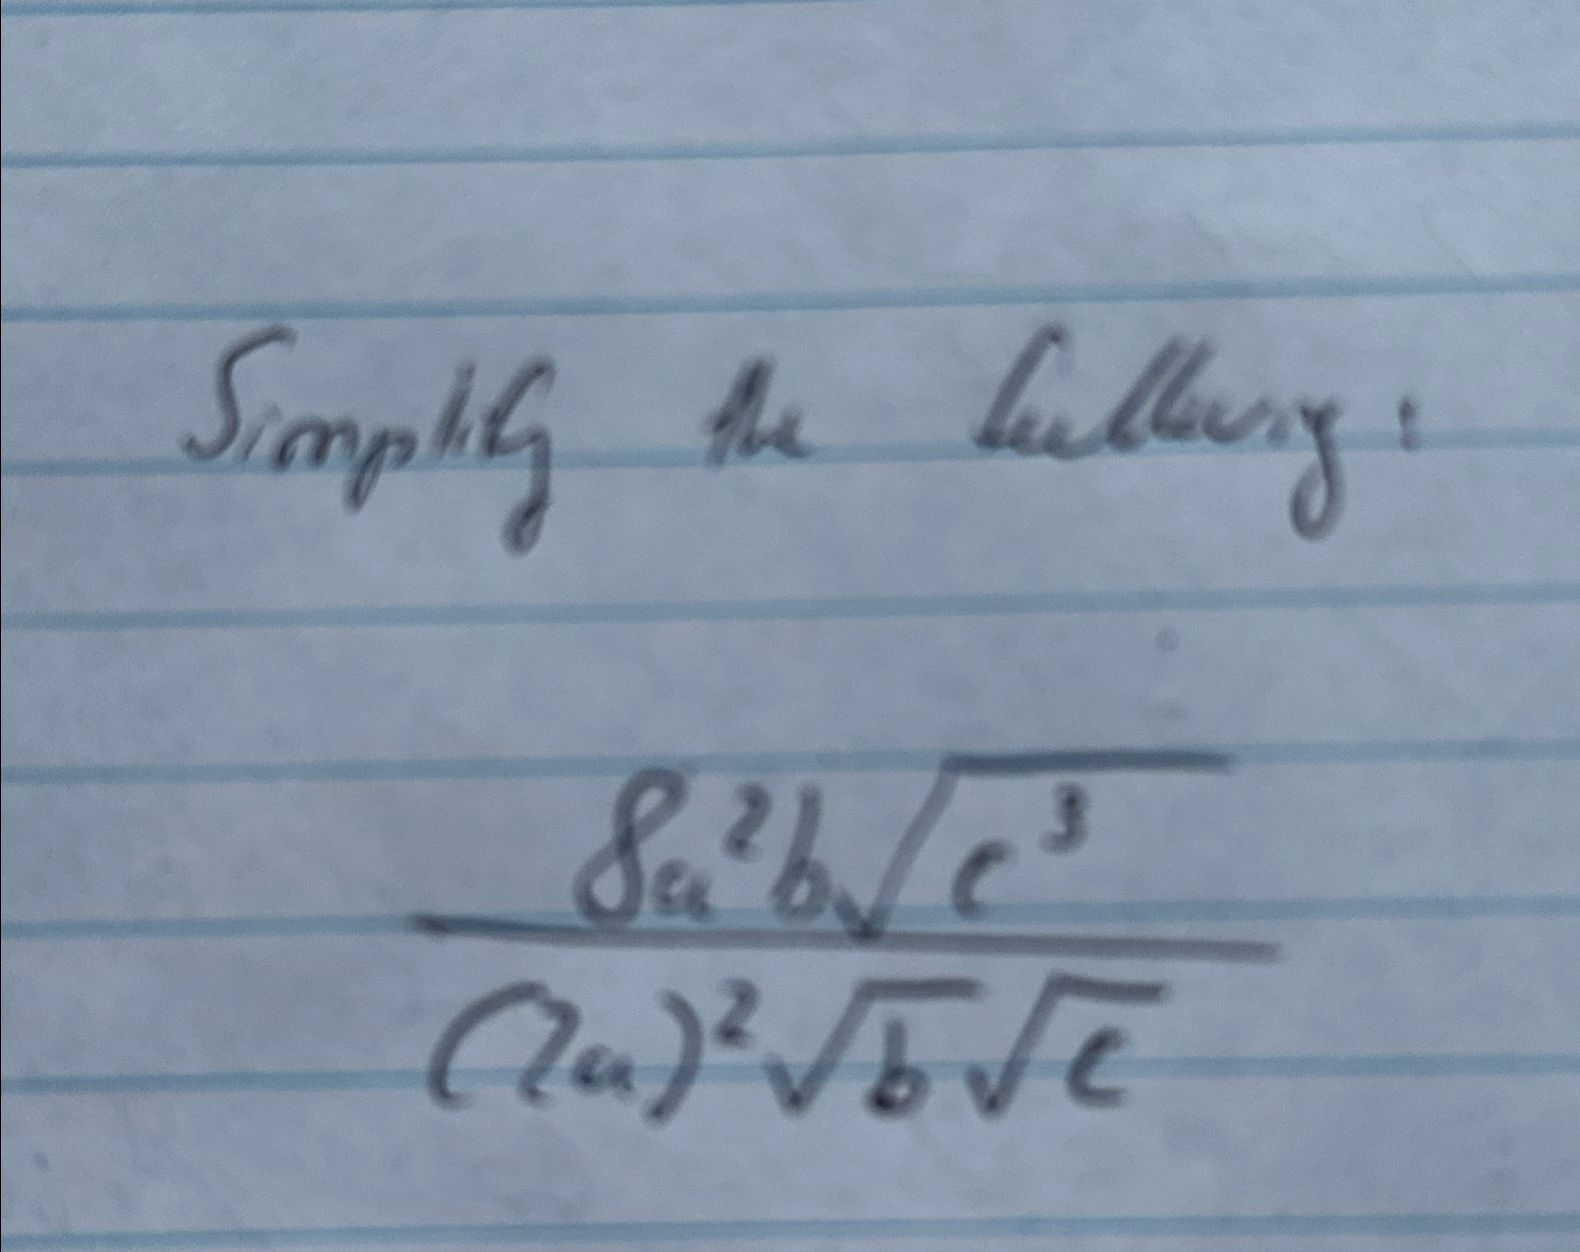 Simplify the following:
8a²b√c³
(2a)²√b√c